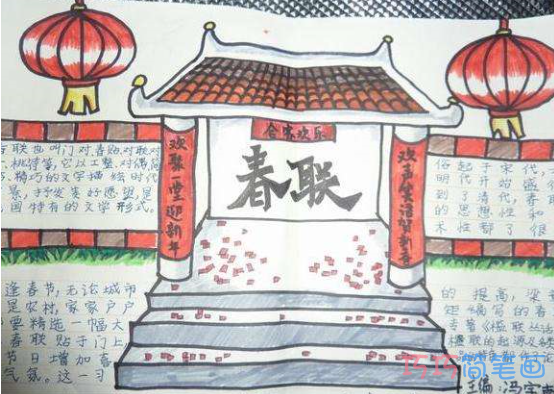 合家欢乐
春联
欢聚一堂迎新年
欢声笑语贺新春
联也叫门对,春贴,对联对
桃符等,它以工整,对偶简
精巧的文字描绘时代
景,抒发美好愿望,是
国特有的文学形式。
俗起于宋代,
明代开始盛
到了清代,春联
的思想性和
术性都了很
逢春节,无论城市
是农村,家家户户
要精选一幅大
春联贴于门上
节日增加喜
气氛。这一习
的提高,梁
短编写的春
专著《槛联丛话
楹联的起源及
巧巧简笔画
主编:冯宇